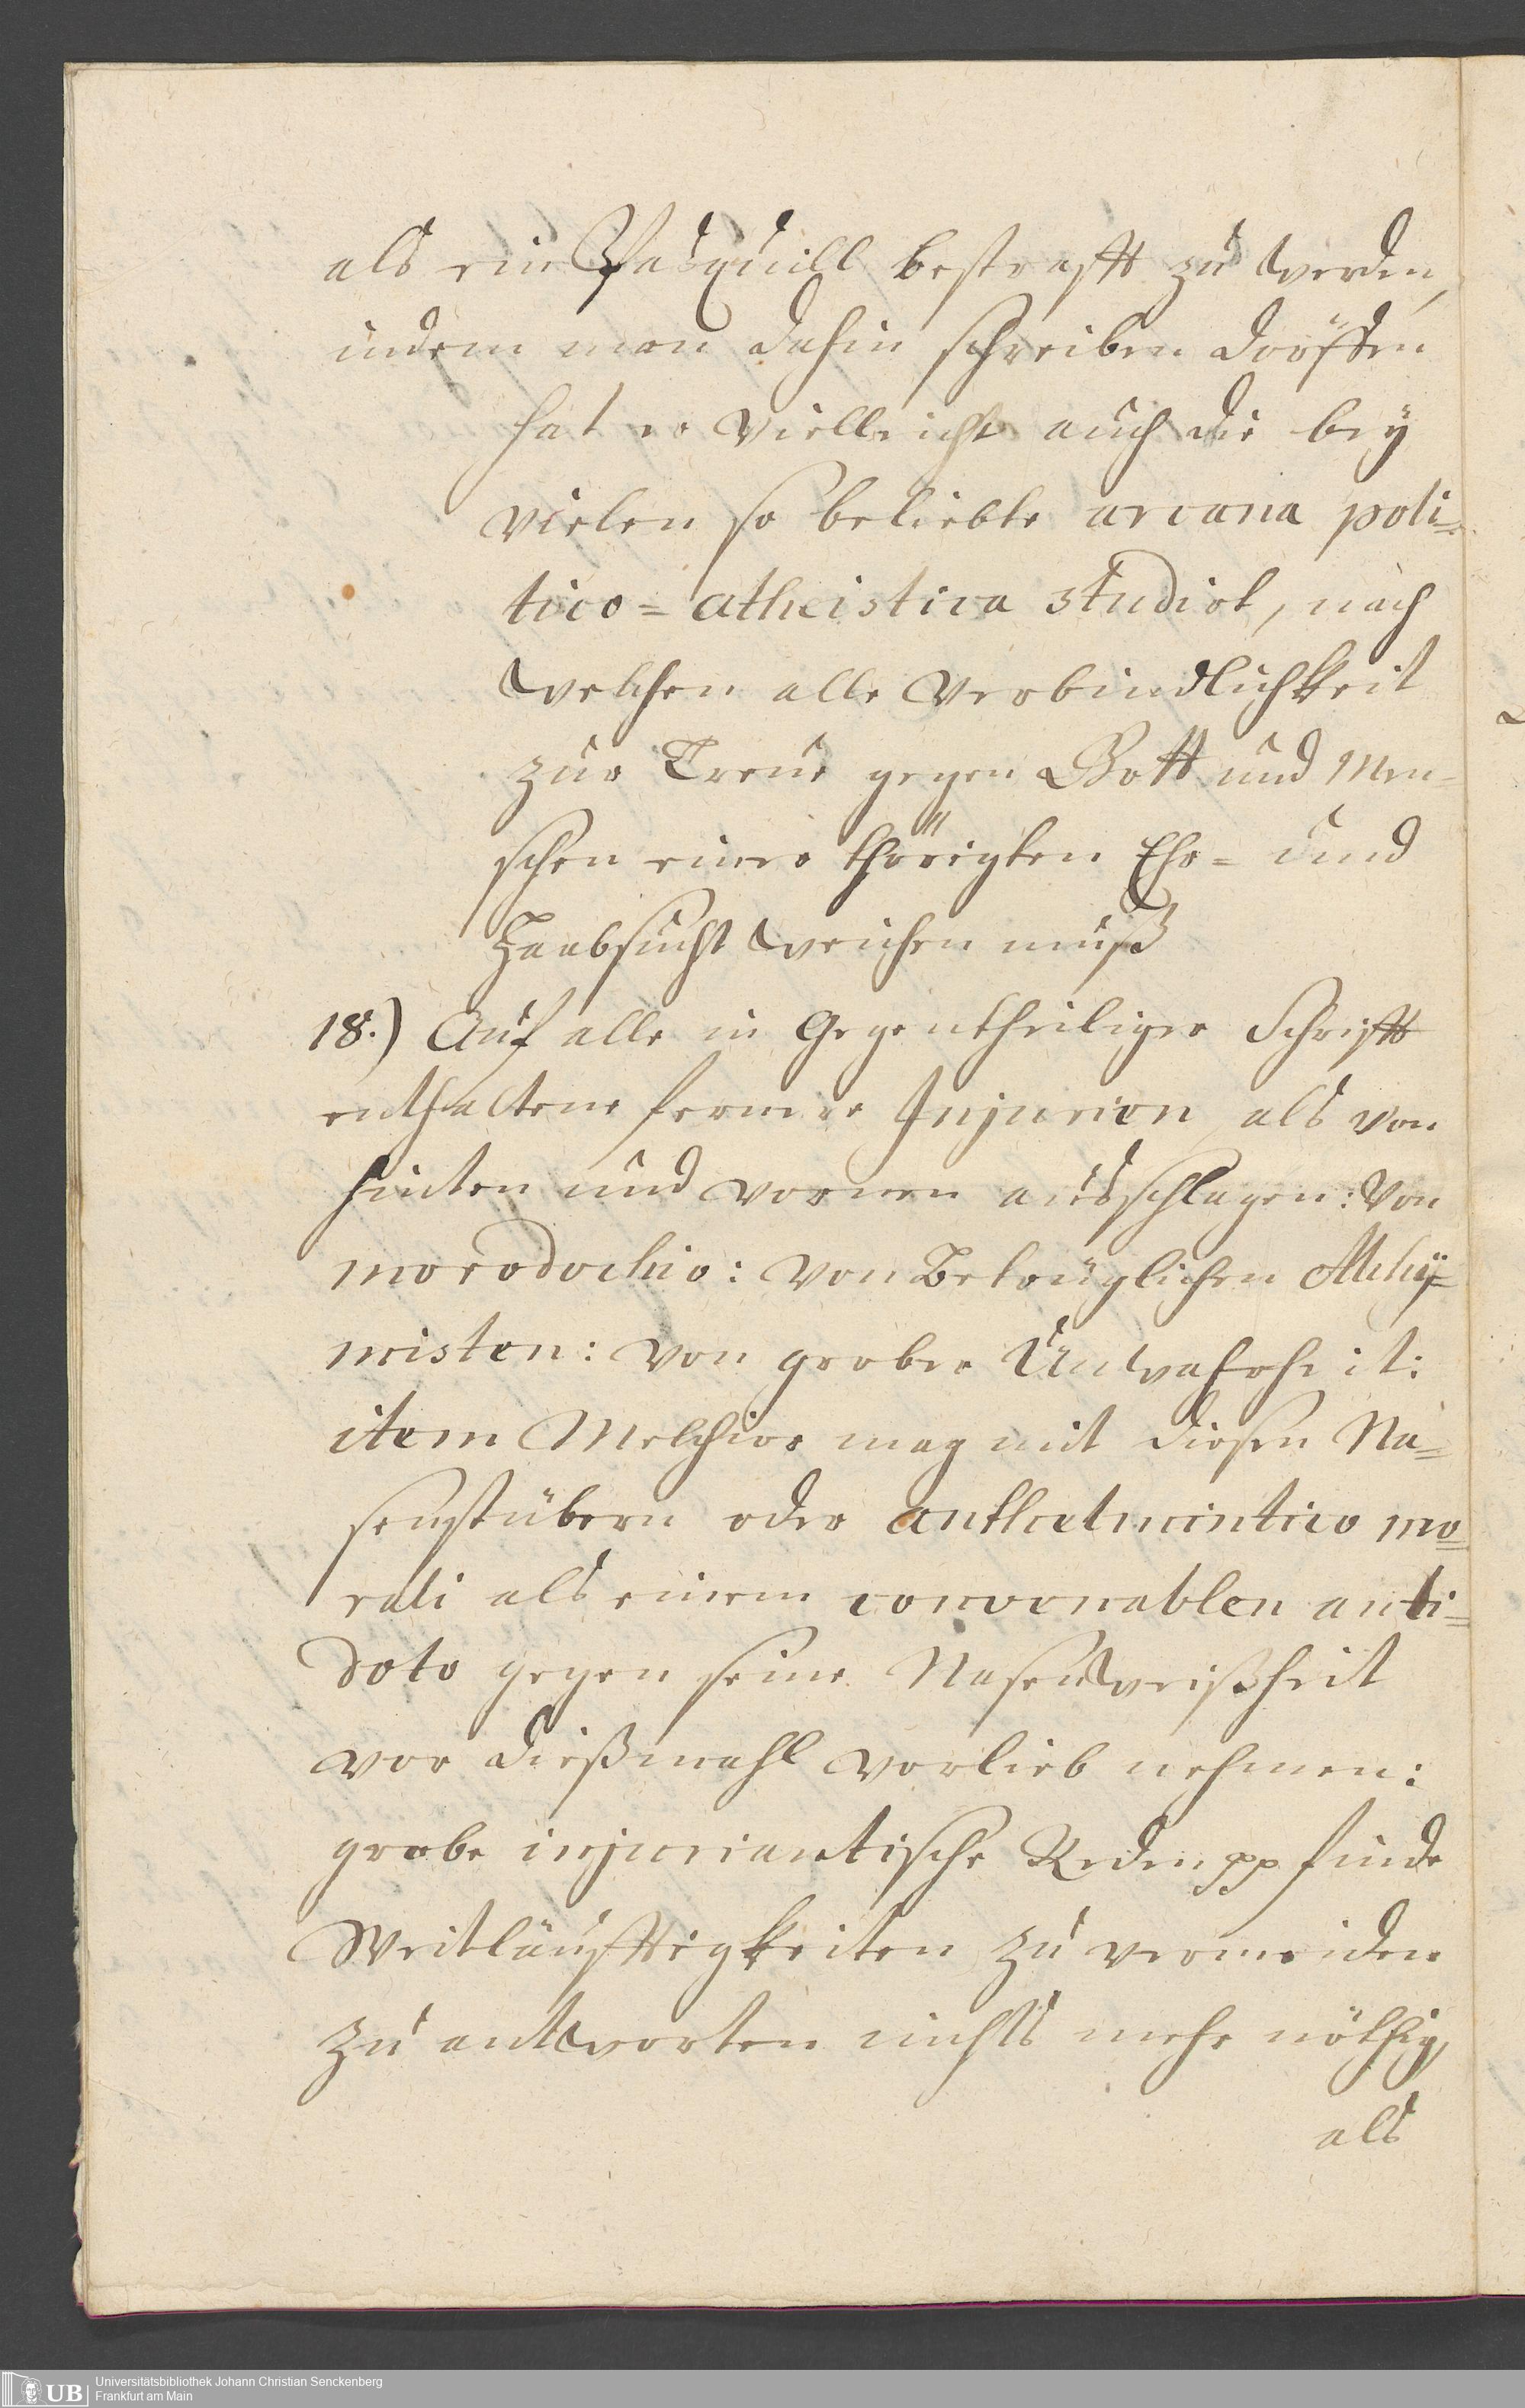 als ein Pasquill bestrafft zu werden,
indem man dahin schreiben dörffen
hat er vielleicht auch die beÿ
vielen so beliebte arcana poli=
tico=atheistica studirt, nach
welchen alle Verbindlichkeit
zur Treue gegen Gott und Men=
schen einer thörigten Ehr= und
Haabsucht weichen muß
18.) Auf alle in Gegentheiliger Schrifft
enthaltene fernere Injurien, als von
hinten und vornen ausschlagen: von
morodochio: von Betrüglichen Alchÿ=
misten: von grober Unwahrheit:
item Melchior mag mit diesen Na=
senstübern oder anthelmintico mo=
rali als einem convenablen anti=
doto gegen seine Nasenweißheit
vor dießmahl vorlieb nehmen:
grobe injuriantische Reden pp finde
Weitläufftigkeiten zu vermeiden
zu antworten nichts mehr nöthig,
als
Universitätsbibliothek Johann Christian Senckenberg
UB Frankfurt am Main